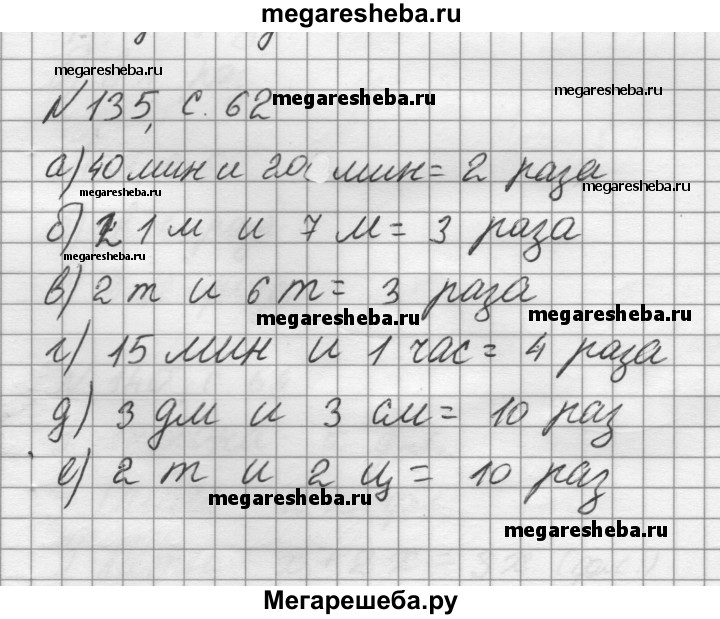 megaresheba.ru
megaresheba.ru
megaresheba.ru
№135, с. 62
megaresheba.ru
а) 40 мин и 20 мин = 2 раза
megaresheba.ru
megaresheba.ru
б) 21 м и 7 м = 3 раза
megaresheba.ru
в) 2 т и 6 т = 3 раза
megaresheba.ru
megaresheba.ru
г) 15 мин и 1 час = 4 раза
д) 3 дм и 3 см = 10 раз
е) 2 т и 2 ц = 10 раз
megaresheba.ru
megaresheba.ru
Мегарешеба.ру